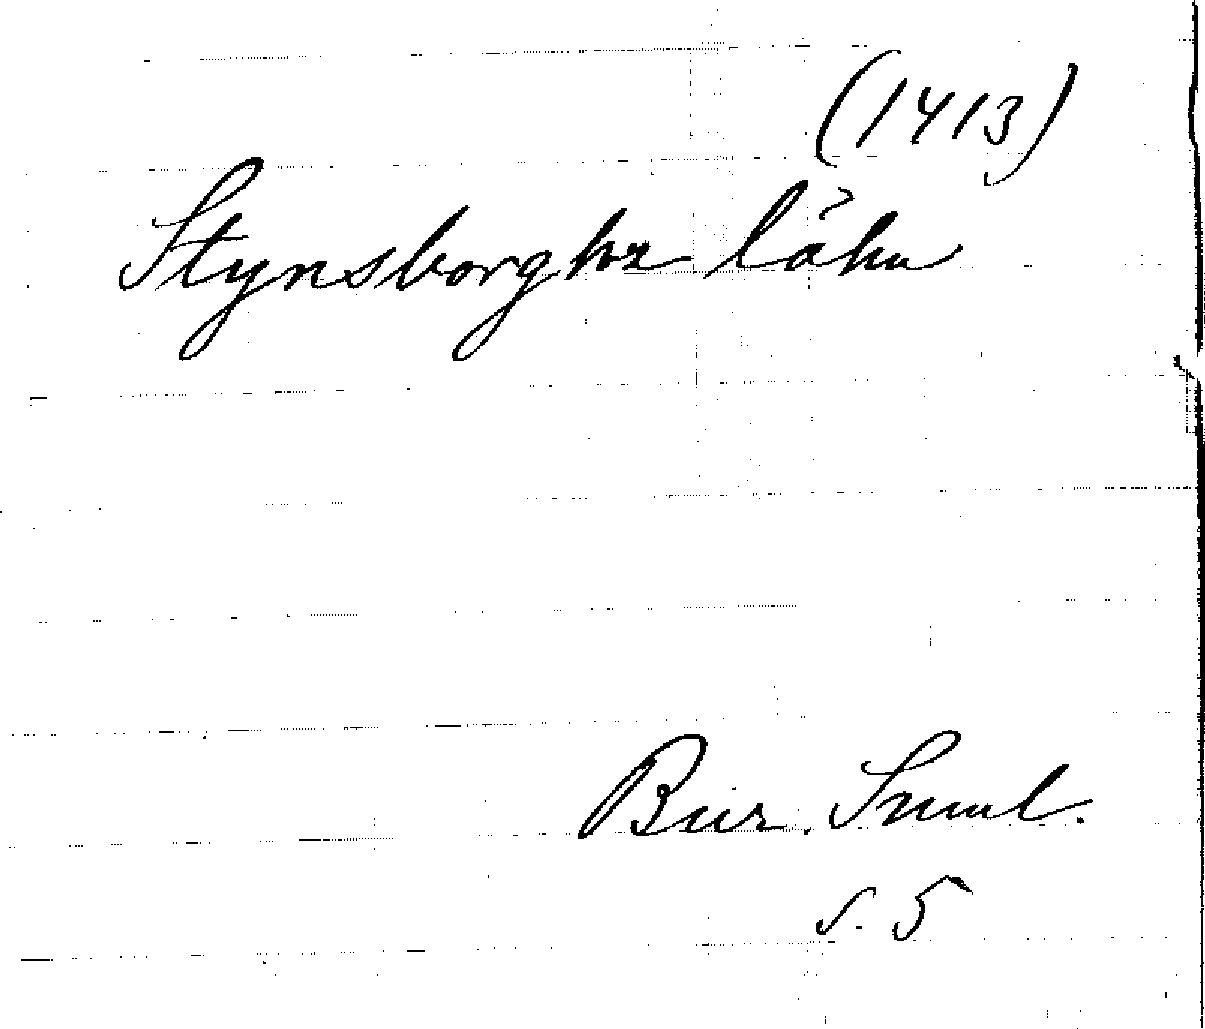 (1413)
Stynsborghz låhn
Bur. Suml.
s. 5